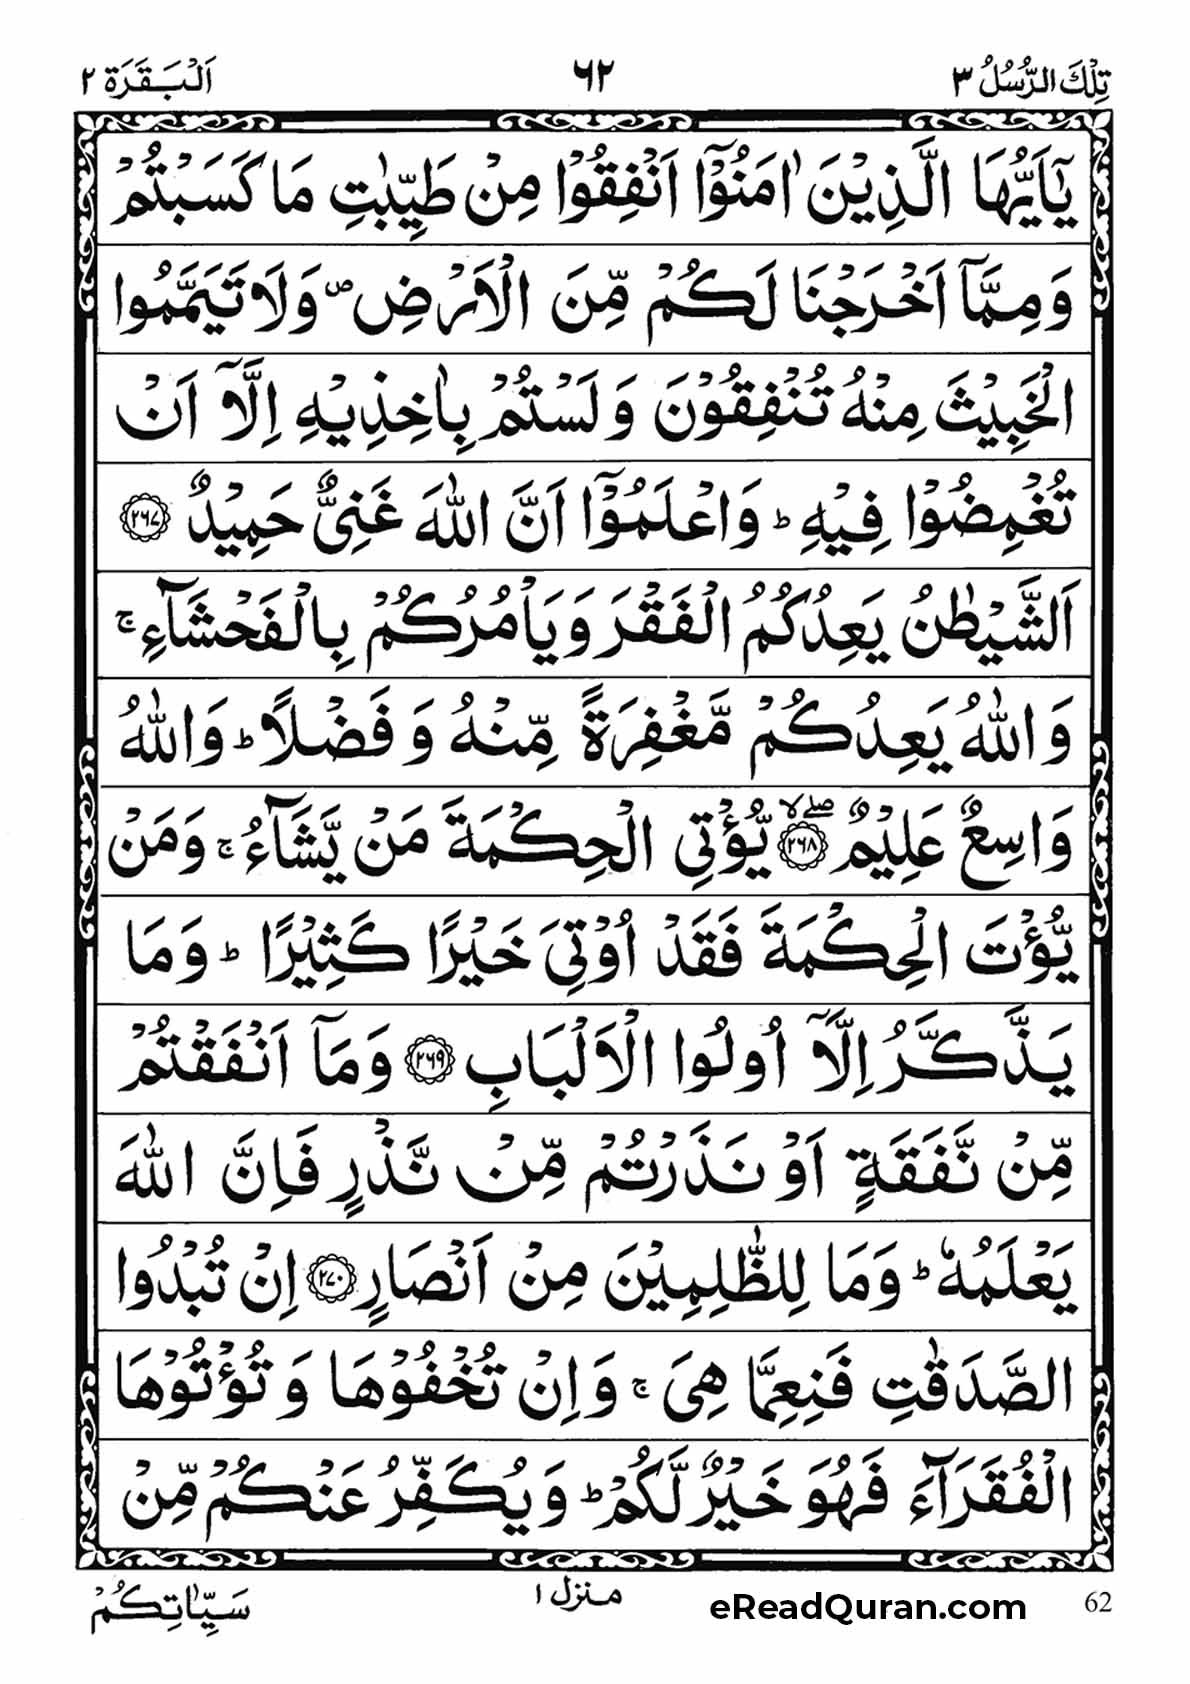 تِلْكَ الرُّسُلُ ٣
٦٢
اَلْبَقَرَة ٢
يٰۤاَيُّهَا الَّذِيْنَ اٰمَنُوْۤا اَنْفِقُوْا مِنْ طَيِّبٰتِ مَا كَسَبْتُمْ
وَمِمَّاۤ اَخْرَجْنَا لَكُمْ مِّنَ الْاَرْضِ ۪ وَلَا تَيَمَّمُوا
الْخَبِيْثَ مِنْهُ تُنْفِقُوْنَ وَلَسْتُمْ بِاٰخِذِيْهِ اِلَّاۤ اَنْ
تُغْمِضُوْا فِيْهِ ؕ وَاعْلَمُوْۤا اَنَّ اللّٰهَ غَنِيٌّ حَمِيْدٌ ﴿٢٦٧﴾
اَلشَّيْطٰنُ يَعِدُكُمُ الْفَقْرَ وَيَاْمُرُكُمْ بِالْفَحْشَآءِ ۚ
وَاللّٰهُ يَعِدُكُمْ مَّغْفِرَةً مِّنْهُ وَفَضْلًا ؕ وَاللّٰهُ
وَاسِعٌ عَلِيْمٌ ﴿٢٦٨﴾ ۖۙ يُّؤْتِي الْحِكْمَةَ مَنْ يَّشَآءُ ۚ وَمَنْ
يُّؤْتَ الْحِكْمَةَ فَقَدْ اُوْتِيَ خَيْرًا كَثِيْرًا ؕ وَمَا
يَذَّكَّرُ اِلَّاۤ اُولُوا الْاَلْبَابِ ﴿٢٦٩﴾ وَمَاۤ اَنْفَقْتُمْ
مِّنْ نَّفَقَةٍ اَوْ نَذَرْتُمْ مِّنْ نَّذْرٍ فَاِنَّ اللّٰهَ
يَعْلَمُهٗ ؕ وَمَا لِلظّٰلِمِيْنَ مِنْ اَنْصَارٍ ﴿٢٧٠﴾ اِنْ تُبْدُوا
الصَّدَقٰتِ فَنِعِمَّا هِيَ ۚ وَاِنْ تُخْفُوْهَا وَتُؤْتُوْهَا
الْفُقَرَآءَ فَهُوَ خَيْرٌ لَّكُمْ ؕ وَيُكَفِّرُ عَنْكُمْ مِّنْ
سَيِّاٰتِكُمْ
منزل ١
eReadQuran.com
62